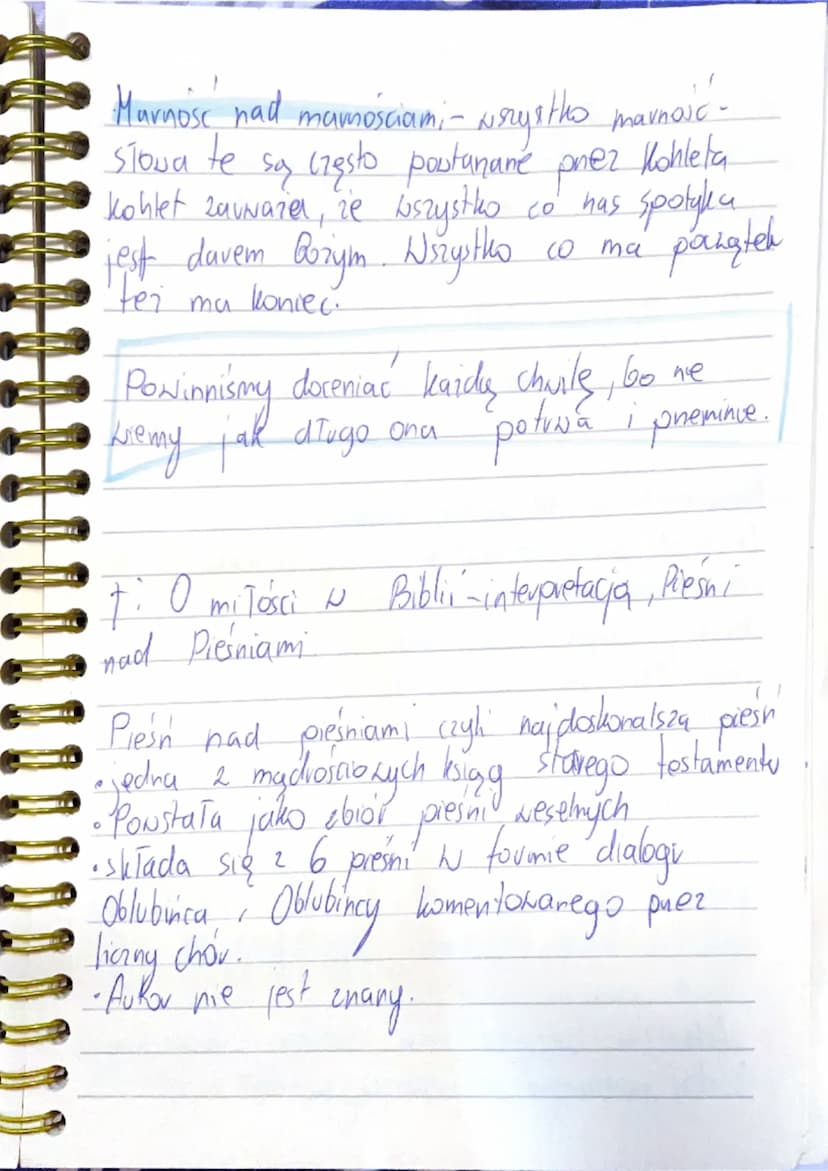 Marność nad marnościami,- wszystko marność -
słowa te są często powtarzane przez Kohleta
Kohlet zauważa, że wszystko co nas spotyka
jest darem Bożym. Wszystko co ma początek
też ma koniec.
Powinniśmy doceniać każdą chwilę, bo nie
wiemy jak długo ona potrwa i przeminie.
T: O miłości w Biblii - interpretacja, Pieśni
nad Pieśniami
Pieśń nad pieśniami czyli najdoskonalsza pieśń
• jedna z mądrościowych ksiąg starego testamentu.
• Powstała jako zbiór pieśni weselnych
• składa się z 6 pieśni w formie dialogu
Oblubińca i Oblubincy komentowanego przez
liczny chór.
• Autor nie jest znany.